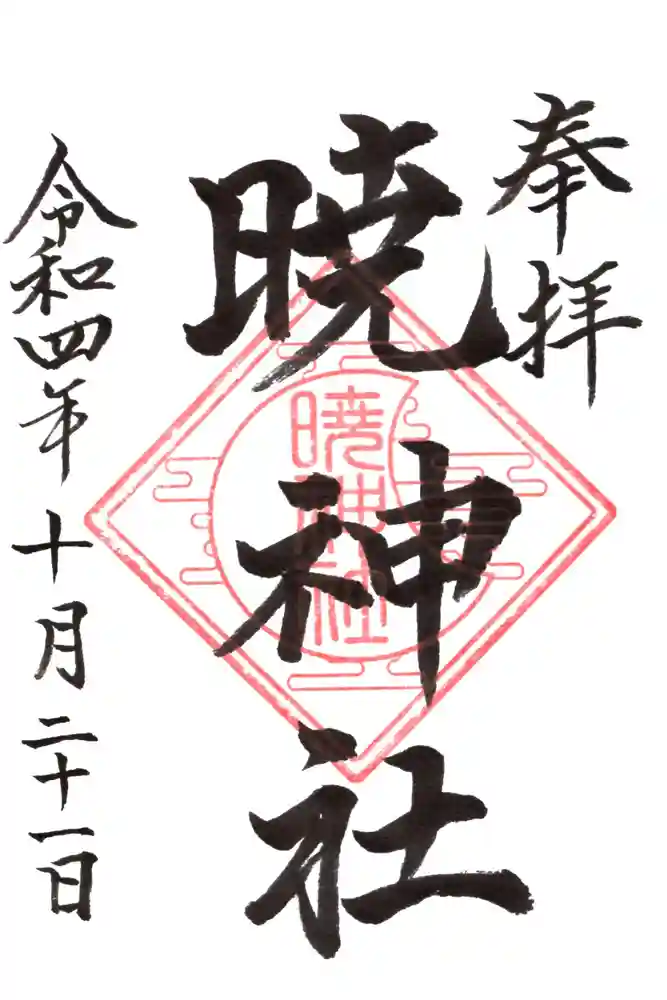 奉拝
暁神社
暁神社
令和四年十月二十一日